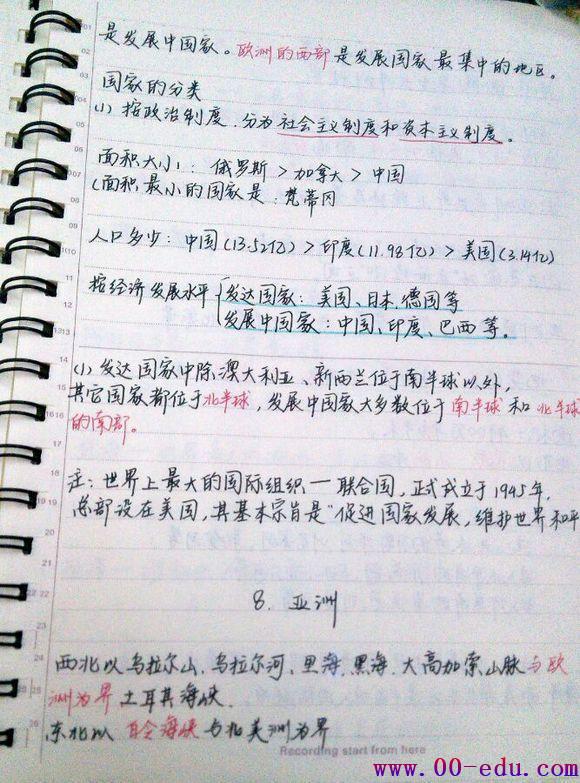 是发展中国家。欧洲的西部是发展国家最集中的地区。
国家的分类
(1) 按政治制度.分为社会主义制度和资本主义制度。
面积大小: 俄罗斯>加拿大>中国
(面积最小的国家是:梵蒂冈
人口多少: 中国(13.52亿)>印度(11.98亿)>美国(3.14亿)
按经济发展水平{发达国家: 美国、日本、德国等
发展中国家: 中国、印度、巴西等.
(1) 发达国家中除澳大利亚、新西兰位于南半球以外,
其它国家都位于北半球,发展中国家大多数位于南半球和北半球
的南部。
注: 世界上最大的国际组织一联合国,正式成立于1945年,
总部设在美国,其基本宗旨是"促进国家发展,维护世界和平
8. 亚洲
西北以乌拉尔山、乌拉尔河、里海、黑海、大高加索山脉与欧
洲为界 土耳其海峡.
东北以 白令海峡与北美洲为界
Recording start from here
www.00-edu.com